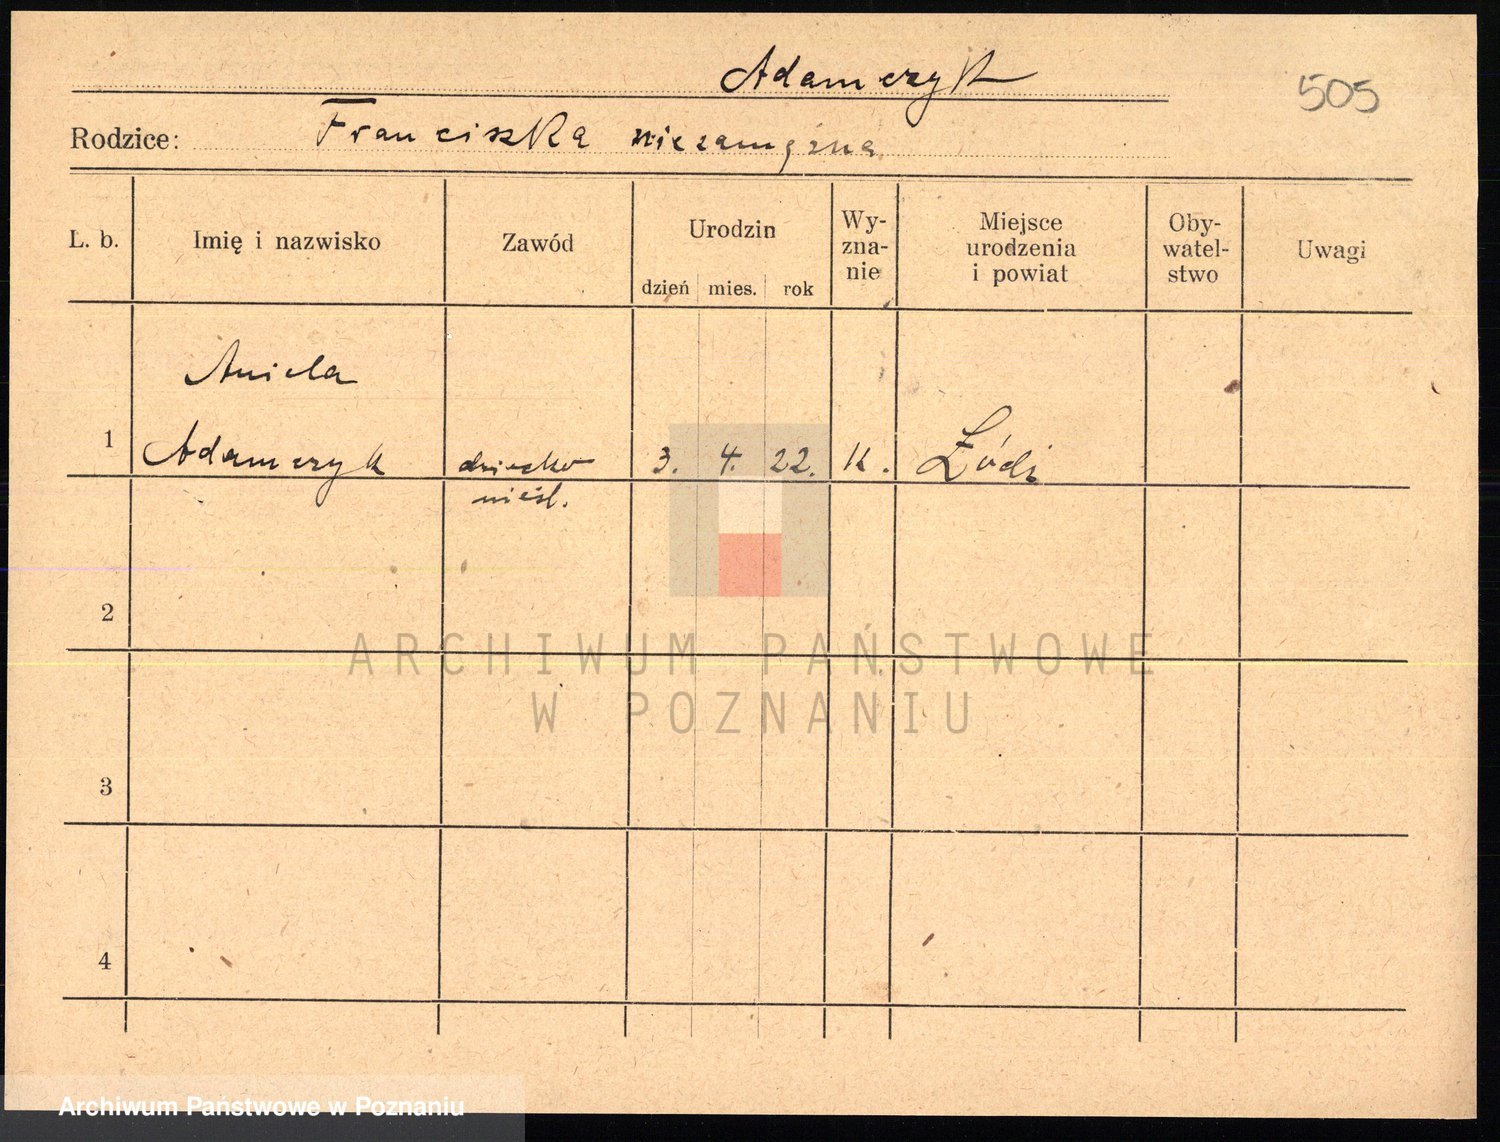 Adamczyk
505
Rodzice: Franciszka niezamężna
L. b. Imię i nazwisko Zawód Urodzin dzień mies. rok Wy-
zna-
nie Miejsce
urodzenia
i powiat Oby-
watel-
stwo Uwagi
Aniela
1 Adamczyk dziecko 3. 4. 22. K. Łódź
nieśl.
2
ARCHIWUM PAŃSTWOWE
W POZNANIU
3
4
Archiwum Państwowe w Poznaniu